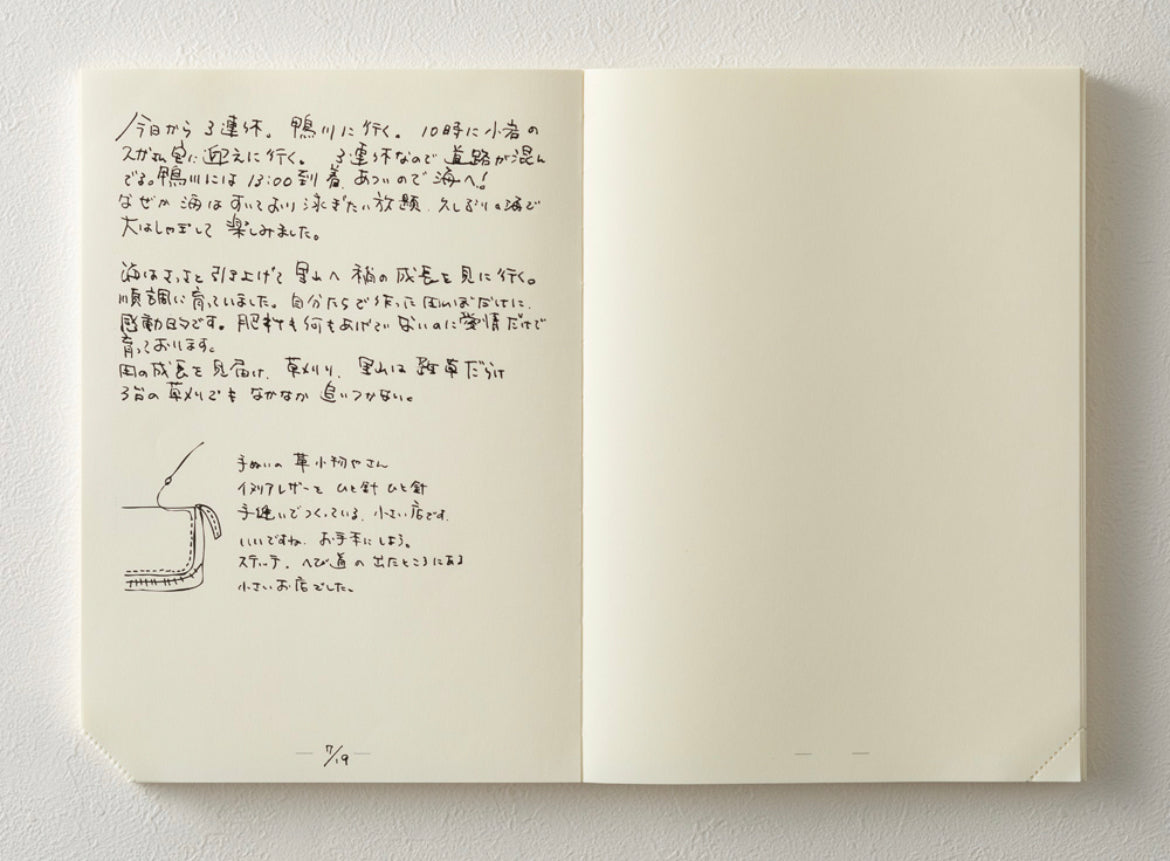 今日から3連休。鴨川に行く。10時に小岩の
スガさん宅に迎えに行く。3連休なので道路が混ん
でる。鴨川には13:00到着、あついので海へ!
なぜか海はすいており泳ぎたい放題、久しぶりの海で
大はしゃぎして楽しみました。
海はさっさと引き上げて里山へ稲の成長を見に行く。
順調に育っていました。自分たちで作った田んぼだけに、
感動的です。肥料も何もあげていないのに愛情だけで
育っております。
田の成長を見届け、草刈り、里山は雑草だらけ
3台の草刈りでもなかなか追いつかない。
手ぬいの革小物やさん
イタリアレザーを ひと針 ひと針
手縫いでつくっている、小さい店です。
いいですね、お手本にしよう。
ステッチ、へび道の出たところにある
小さいお店でした。
7/19